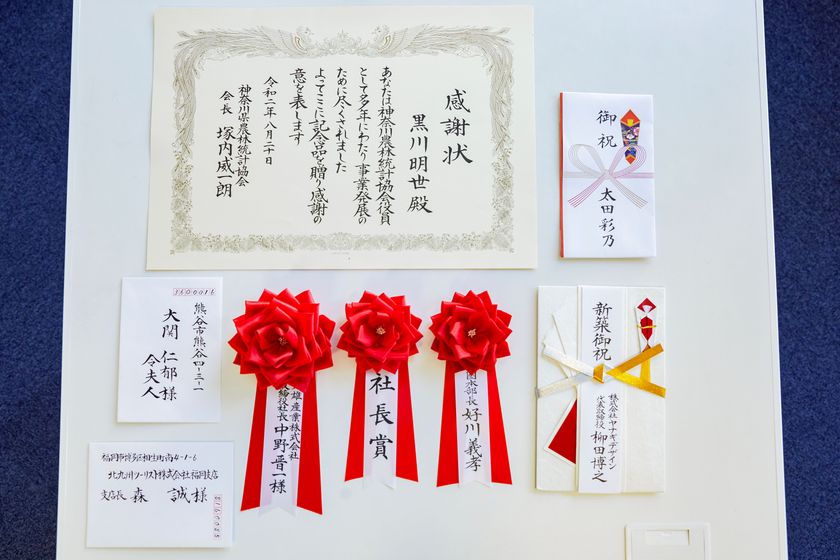 感謝状
黒川明世殿
あなたは神奈川農林統計協会役員
として多年にわたり事業発展の
ために尽くされました
よってここに記念品を贈り感謝の
意を表します
令和二年八月二十日
神奈川県農林統計協会
会長 塚内威一朗
御祝
太田彩乃
3600016
熊谷市熊谷四-三-一
大関 仁郁様
令夫人
雄産業株式会社
取締役社長 中野晋一様
社長賞
部長 好川義孝
新築御祝
株式会社ヤナギデザイン
代表取締役 柳田博之
北九州ツーリスト株式会社福岡支店
支店長 森 誠様